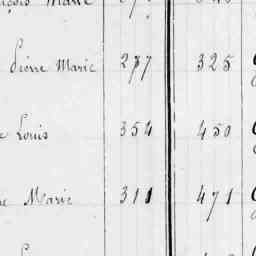 Marie
Pierre Marie 277 325
Louis 354 450
Marie 311 471